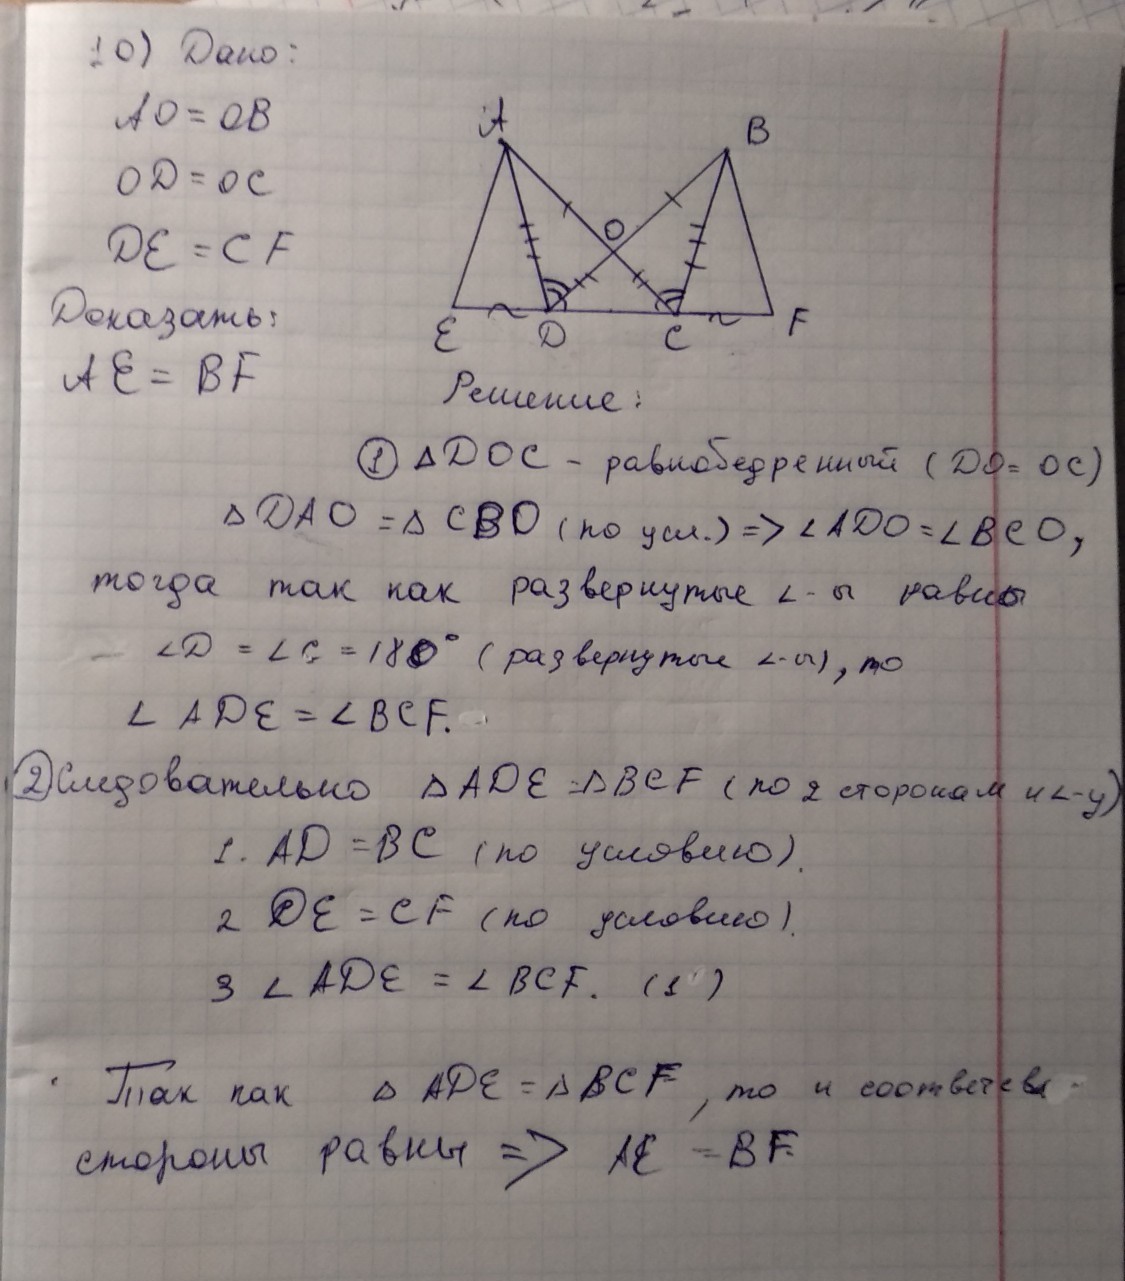 10) Дано:
AO = OB
OD = OC
DE = CF
Доказать:
AE = BF
A
B
O
E
D
C
F
Решение:
① △DOC - равнобедренный (DO = OC)
△DAO = △CBO (по усл.) => ∠ADO = ∠BCO,
тогда так как развернутые ∠-ы равны
∠D = ∠C = 180° (развернутые ∠-ы), то
∠ADE = ∠BCF.
② Следовательно △ADE = △BCF (по 2 сторонам и ∠-у)
1. AD = BC (по условию).
2 DE = CF (по условию).
3 ∠ADE = ∠BCF. (1)
Так как △ADE = △BCF, то и
стороны равны => AE = BF